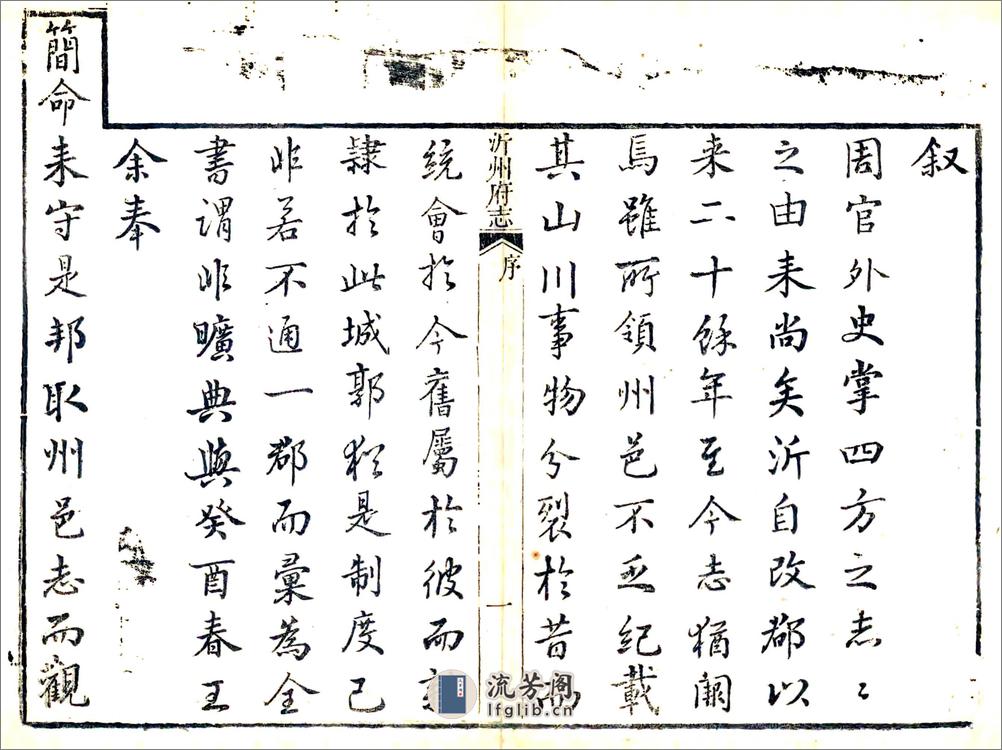 叙
周官外史掌四方之志志
之由来尚矣沂自改郡以
来二十餘年至今志猶闕
焉雖所領州邑不乏紀載
其山川事物分裂於昔而
沂州府志
序
一
統會於今舊屬於彼而
隷於此城郭猶是制度已
非若不通一郡而彙為全
書謂非曠典與癸酉春王
余奉
簡命
来守是邦取州邑志而觀
流芳阁
lfglib.cn